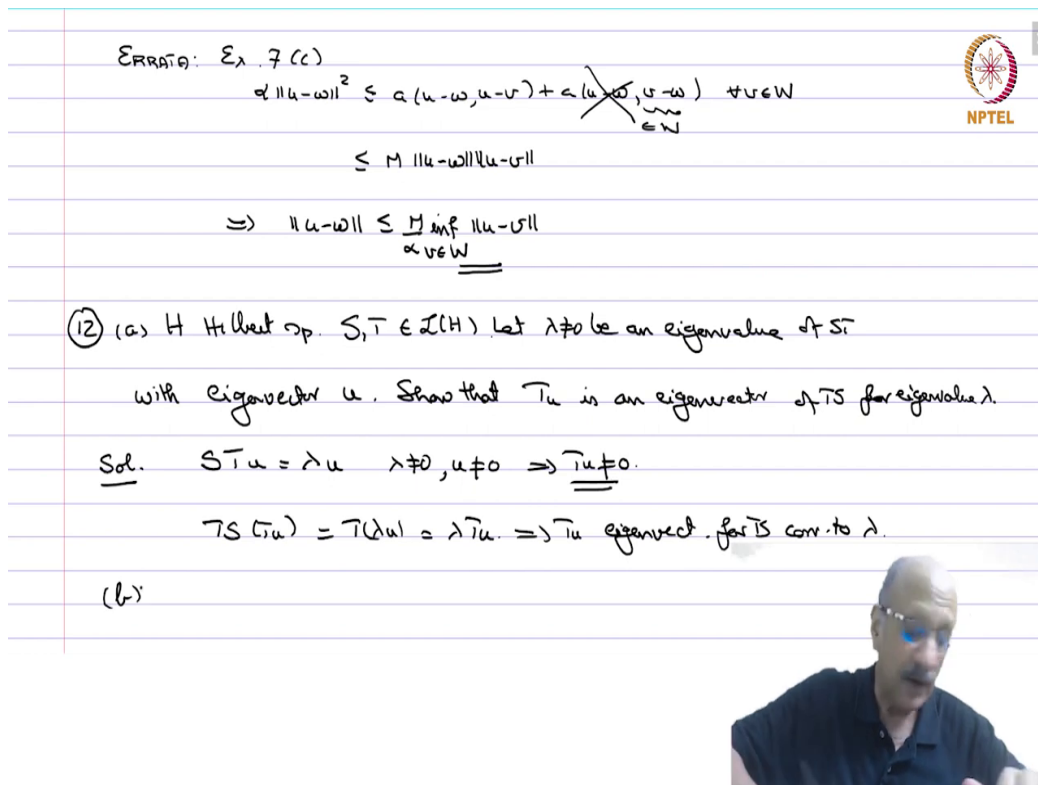 ERRATA: Ex. 7(c)
α ||u-w||² ≤ a(u-w, u-v) + a(u-w, v-w) ∀v∈W
∈W
NPTEL
≤ M ||u-w|| ||u-v||
⇒ ||u-w|| ≤ M/α inf ||u-v||
v∈W
(12) (a) H Hilbert sp. S,T ∈ L(H). Let λ≠0 be an eigenvalue of ST
with eigenvector u. Show that Tu is an eigenvector of TS for eigenvalue λ.
Sol. STu = λu λ≠0, u≠0 ⇒ Tu≠0.
TS(Tu) = T(λu) = λTu. ⇒ Tu eigenvect. for TS corr. to λ.
(b)